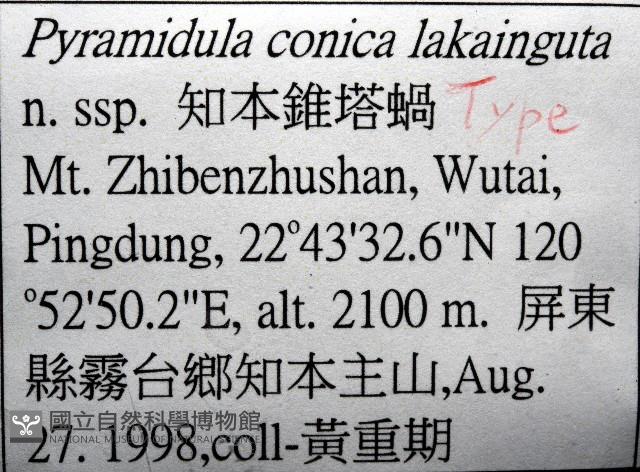 Pyramidula conica lakainguta
n. ssp. 知本錐塔蝸 Type
Mt. Zhibenzhushan, Wutai,
Pingdung, 22°43'32.6"N 120
°52'50.2"E, alt. 2100 m. 屏東
縣霧台鄉知本主山,Aug.
國立自然科學博物館
NATIONAL MUSEUM OF NATURAL SCIENCE
27. 1998,coll-黃重期